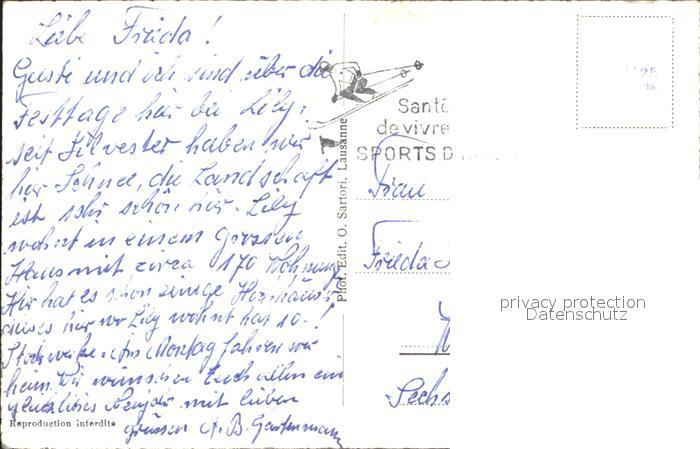 Liebe Frieda!
Gusti und ich sind über die
Festtage hier bei Lily,
seit Sylvester haben wir
hier Schnee, die Landschaft
ist sehr schön hier. Lily
wohnt in einem Grossen
Haus mit zirca 170 Wohnung
Hir hat es schon einige Hochhäuser
dieses hier wo Lily wohnt hat 10.!
Stockwerke. Am Montag fahren wir
heim. Wir wünschen Euch allen ein
glückliches Neujahr mit lieben
grüssen A. B. Gantenmann
Reproduction interdite
Phot. Edit. O. Sartori, Lausanne
Santé
de vivre
SPORTS D
Frau
Frieda
Sechs
privacy protection
Datenschutz